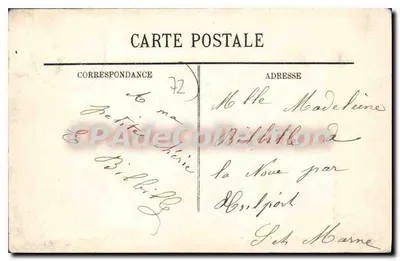 CARTE POSTALE
CORRESPONDANCE
72
A ma
petite chérie
E. Bilbille
ADRESSE
Mlle Madeleine
Bilbille à
la Noue par
Trilport
S et Marne
CPADeCollection